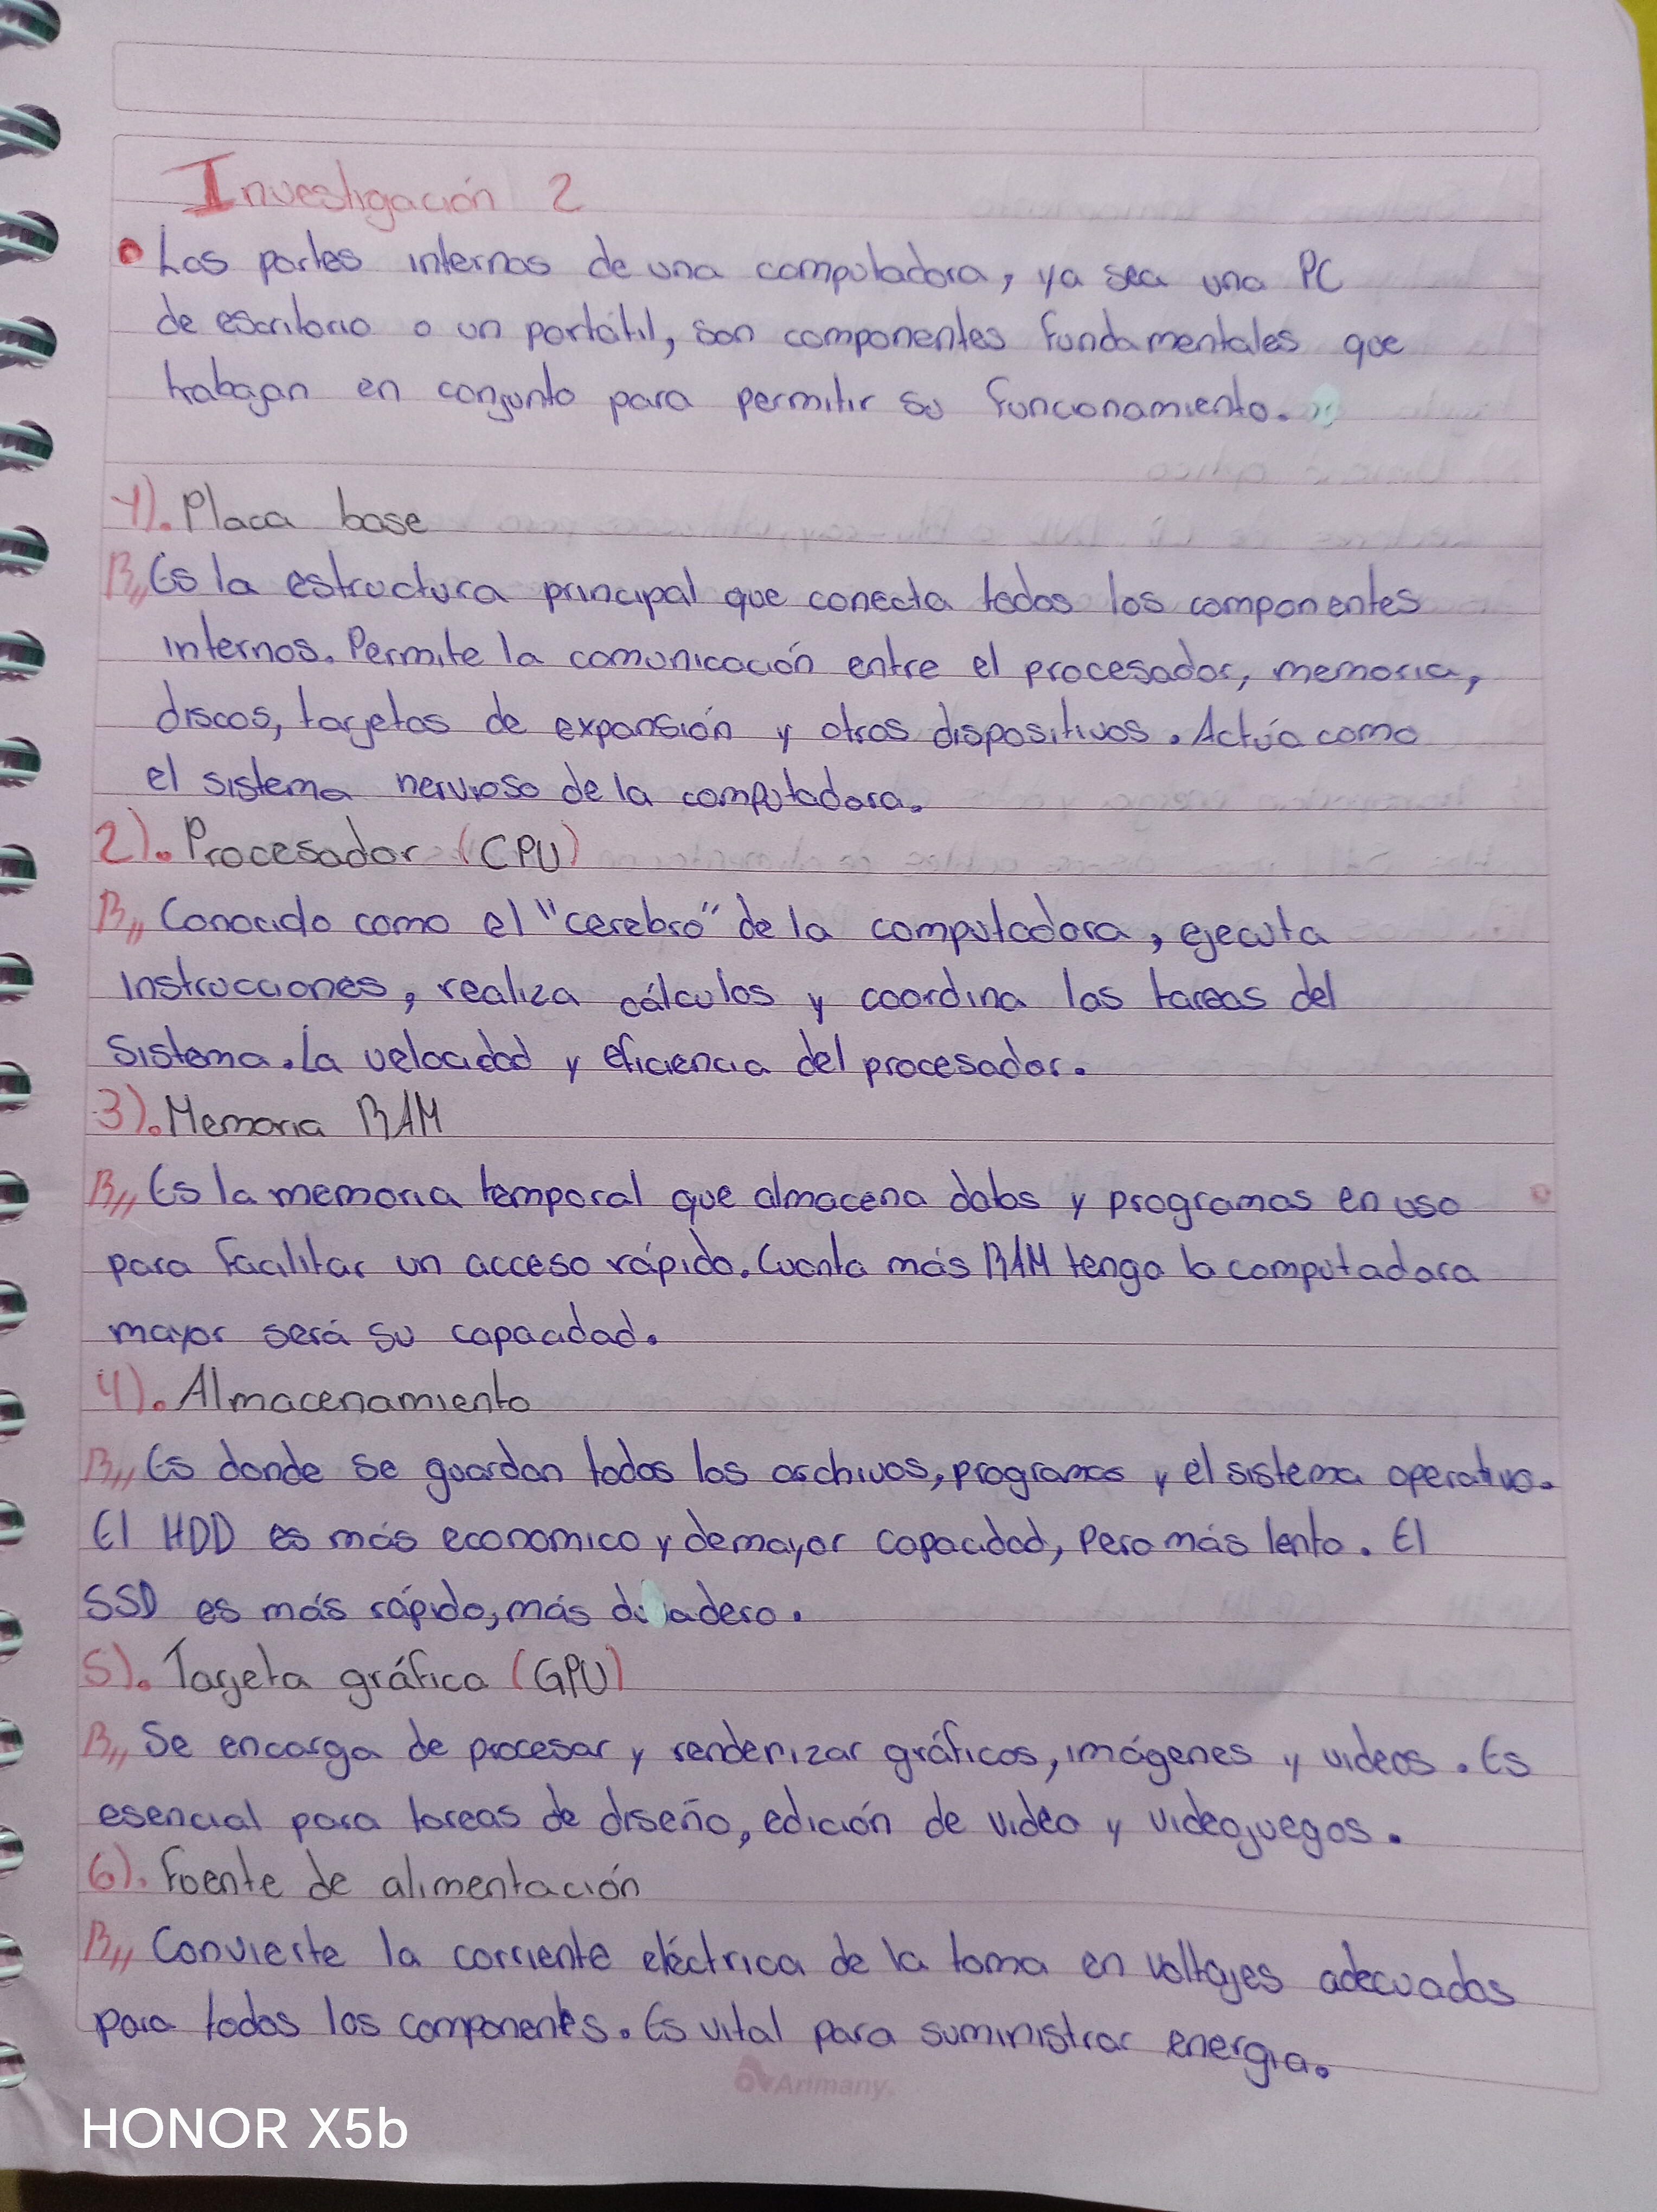 Investigación 2
• Las partes internas de una computadora, ya sea una PC
de escritorio o un portátil, son componentes fundamentales que
trabajan en conjunto para permitir su funcionamiento.
1). Placa base
R// Es la estructura principal que conecta todos los componentes
internos. Permite la comunicación entre el procesador, memoria,
discos, tarjetas de expansión y otros dispositivos. Actúa como
el sistema nervioso de la computadora.
2). Procesador (CPU)
R// Conocido como el "cerebro" de la computadora, ejecuta
instrucciones, realiza cálculos y coordina las tareas del
sistema. La velocidad y eficiencia del procesador.
3). Memoria RAM
R// Es la memoria temporal que almacena datos y programas en uso
para facilitar un acceso rápido. Cuanta más RAM tenga la computadora
mayor será su capacidad.
4). Almacenamiento
R// Es donde se guardan todos los archivos, programas y el sistema operativo.
El HDD es más economico y de mayor capacidad, pero más lento. El
SSD es más rápido, más duradero.
5). Tarjeta gráfica (GPU)
R// Se encarga de procesar y renderizar gráficos, imágenes y videos. Es
esencial para tareas de diseño, edición de video y videojuegos.
6). Fuente de alimentación
R// Convierte la corriente eléctrica de la toma en voltajes adecuados
para todos los componentes. Es vital para suministrar energia.
Arimany.
HONOR X5b